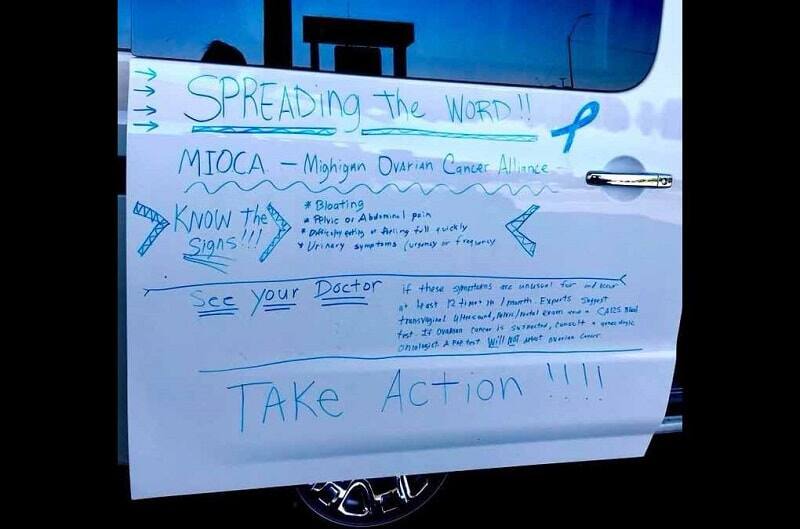 SPREADing the WORD!!
MIOCA - Mighigan Ovarian Cancer Alliance -
KNOW the
Signs!!!
* Bloating
* Pelvic or Abdominal pain
* Difficulty eating or feeling full quickly
* Urinary symptoms (urgency or frequency
See Your Doctor
if these symptoms are unusual for and occur
at least 12 times in 1 month. Experts suggest
transvaginal ultrasound, pelvic/rectal exam and a CA125 Blood
test. If Ovarian cancer is suspected, consult a gynecologic
Oncologist. A PAP test Will Not detect ovarian cancer.
TAKE Action !!!!